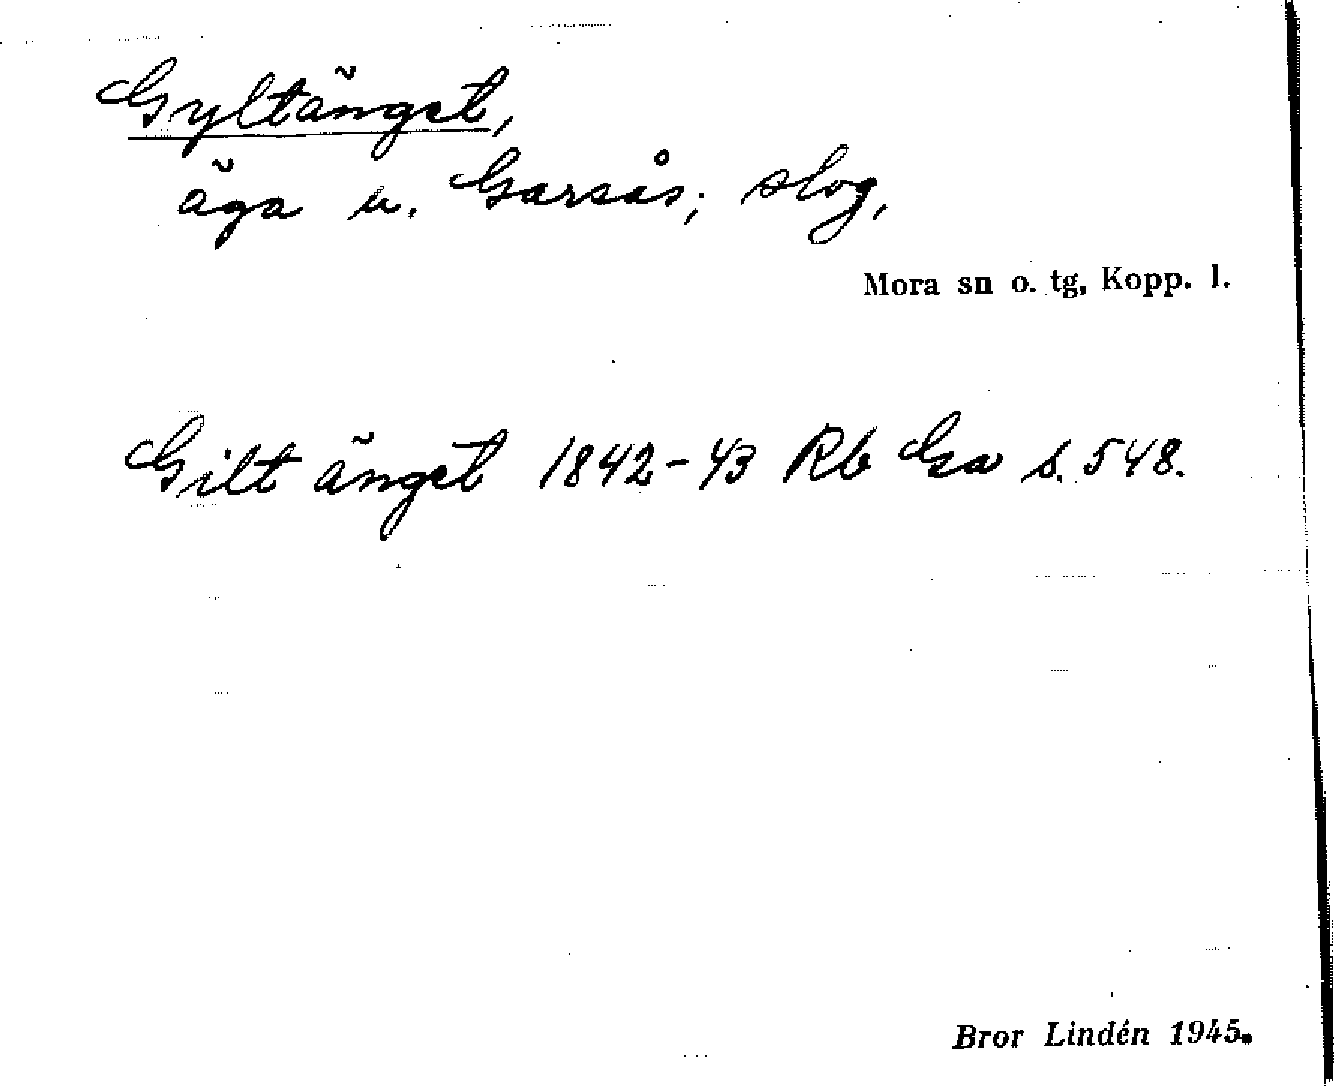 Gyltänget,
äga u. Garsås; slog,
Mora sn o. tg, Kopp. l.
Gilt änget 1842-43 Rb Ga s. 548.
Bror Lindén 1945.